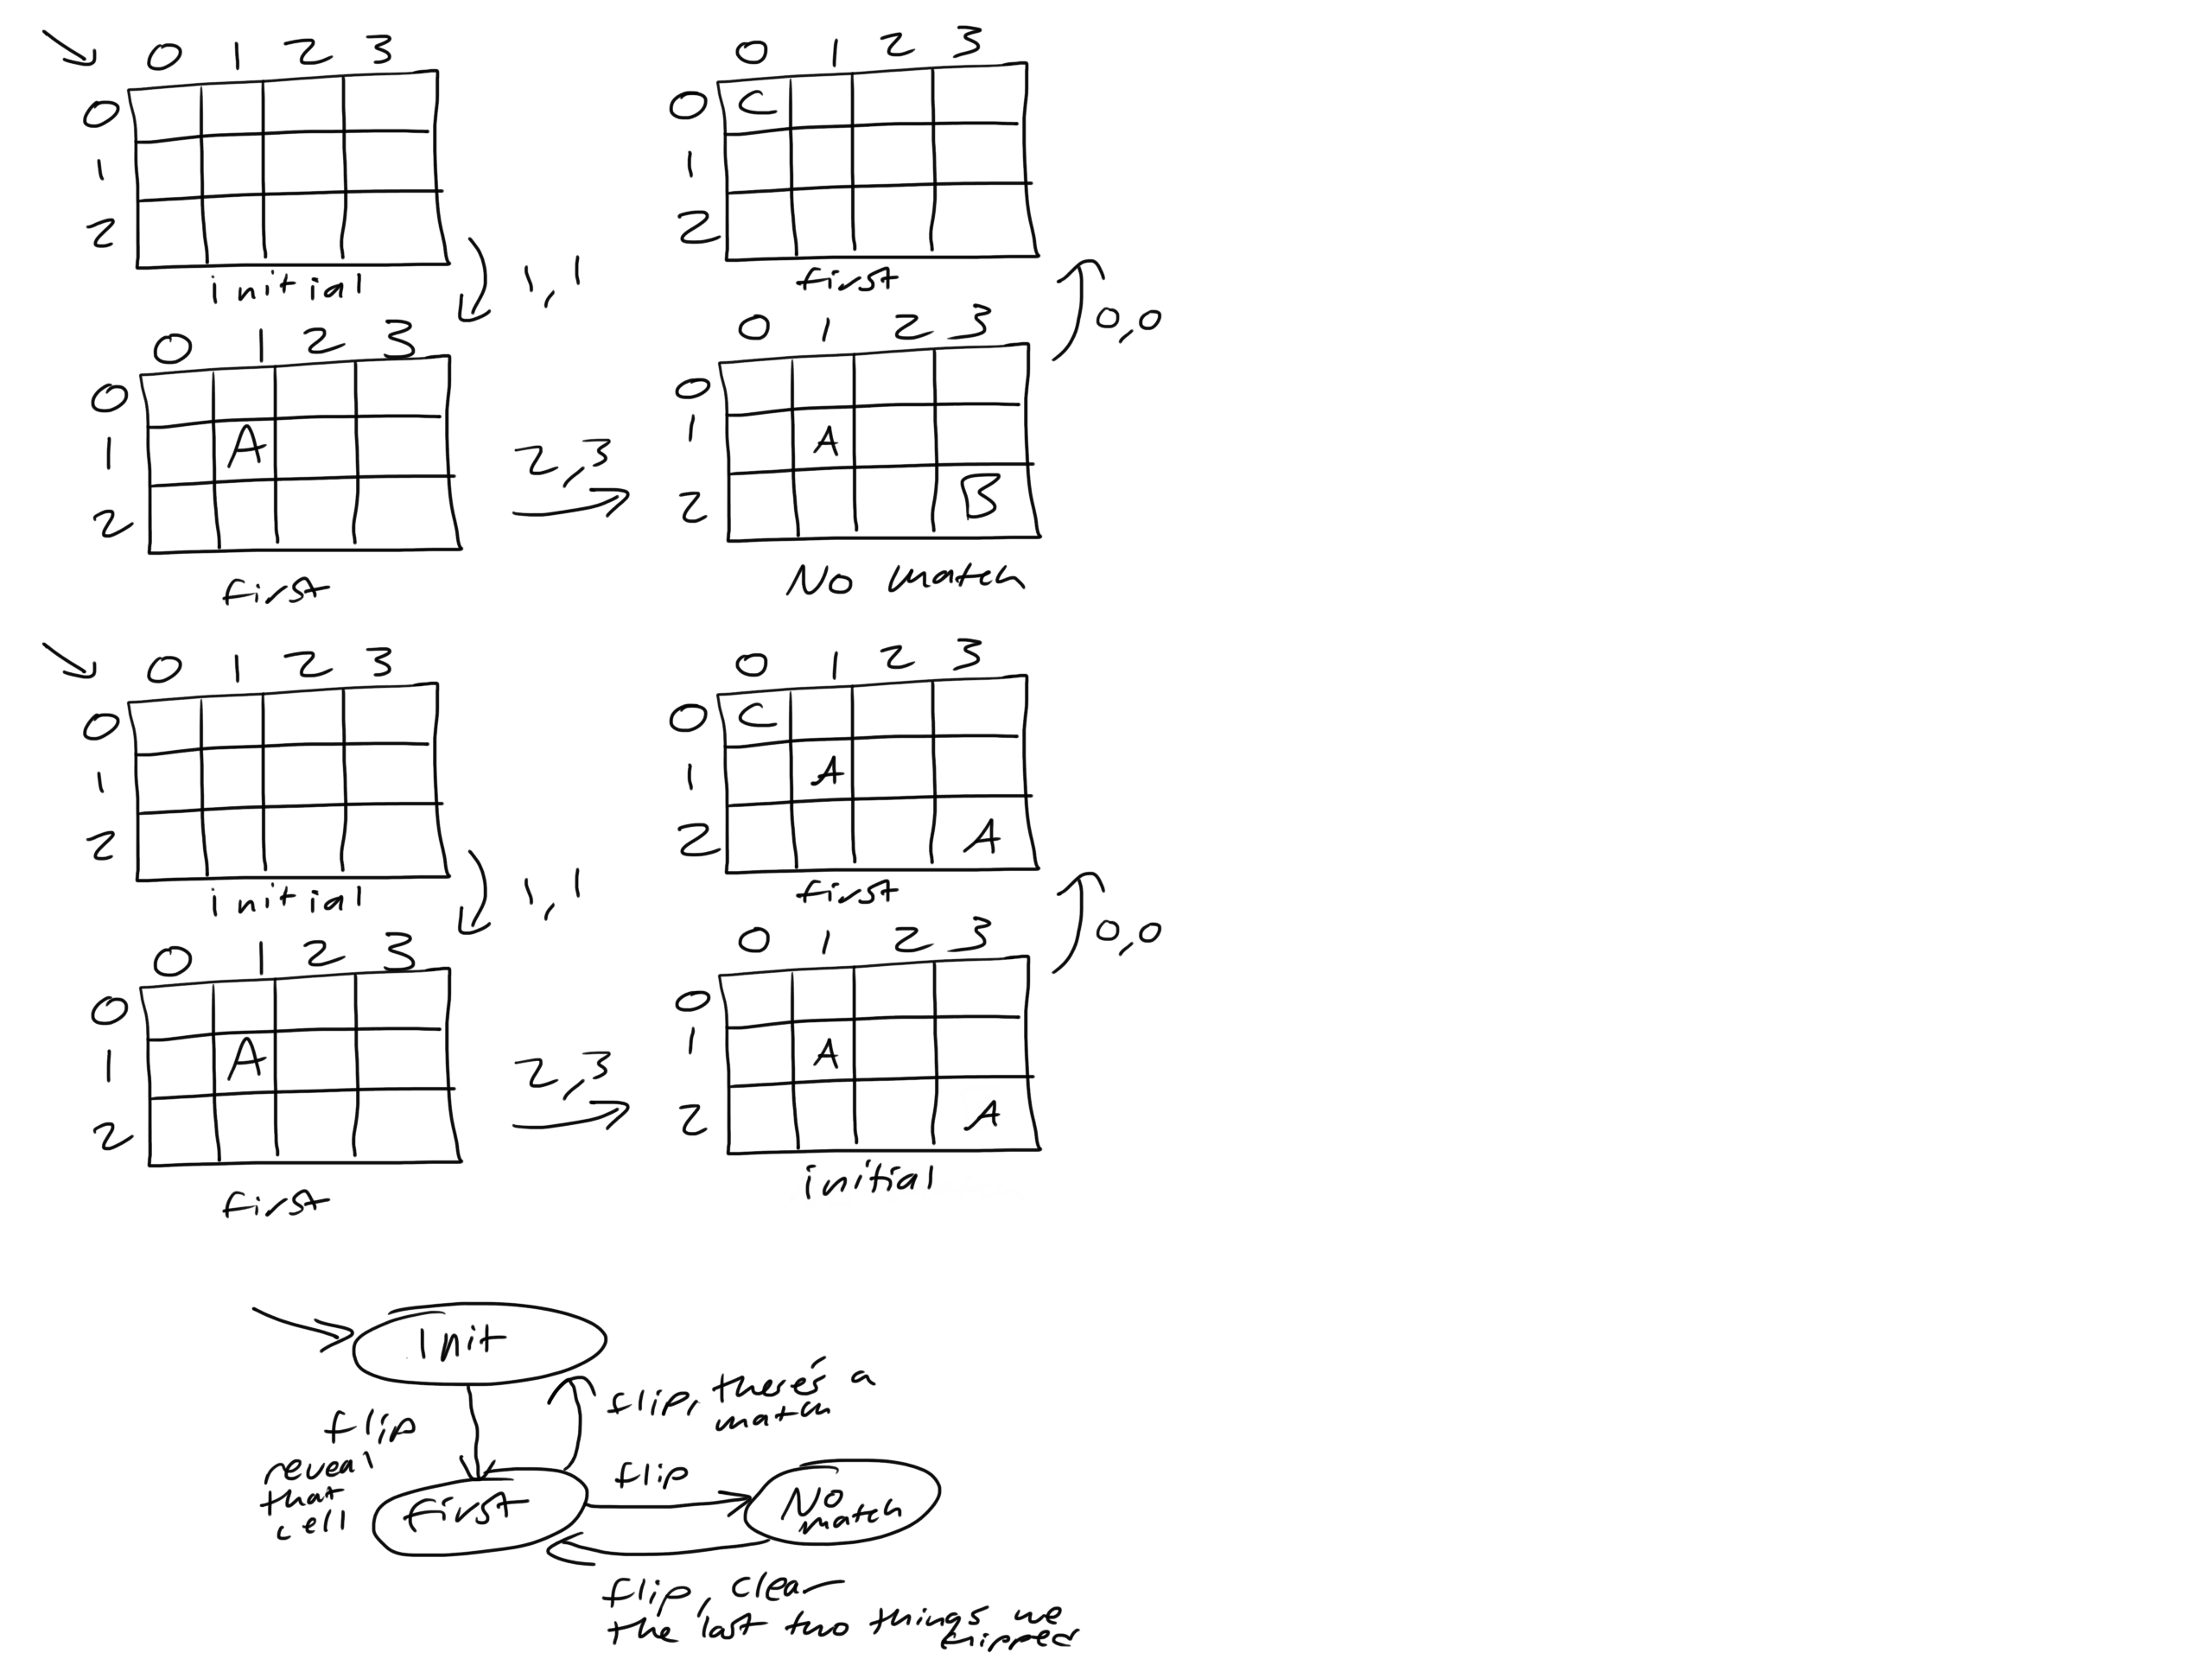 0 1 2 3
0
1
2
initial
1,1
0 1 2 3
0
1 A
2
first
2,3
0 1 2 3
0 C
1
2
first
0,0
0 1 2 3
0
1 A
2 B
No match
0 1 2 3
0
1
2
initial
1,1
0 1 2 3
0
1 A
2
first
2,3
0 1 2 3
0 C
1 A
2 A
first
0,0
0 1 2 3
0
1 A
2 A
initial
Init
flip
reveal
that
cell
flip, there's a
match
first
flip
No
match
flip, clear
the last two things we